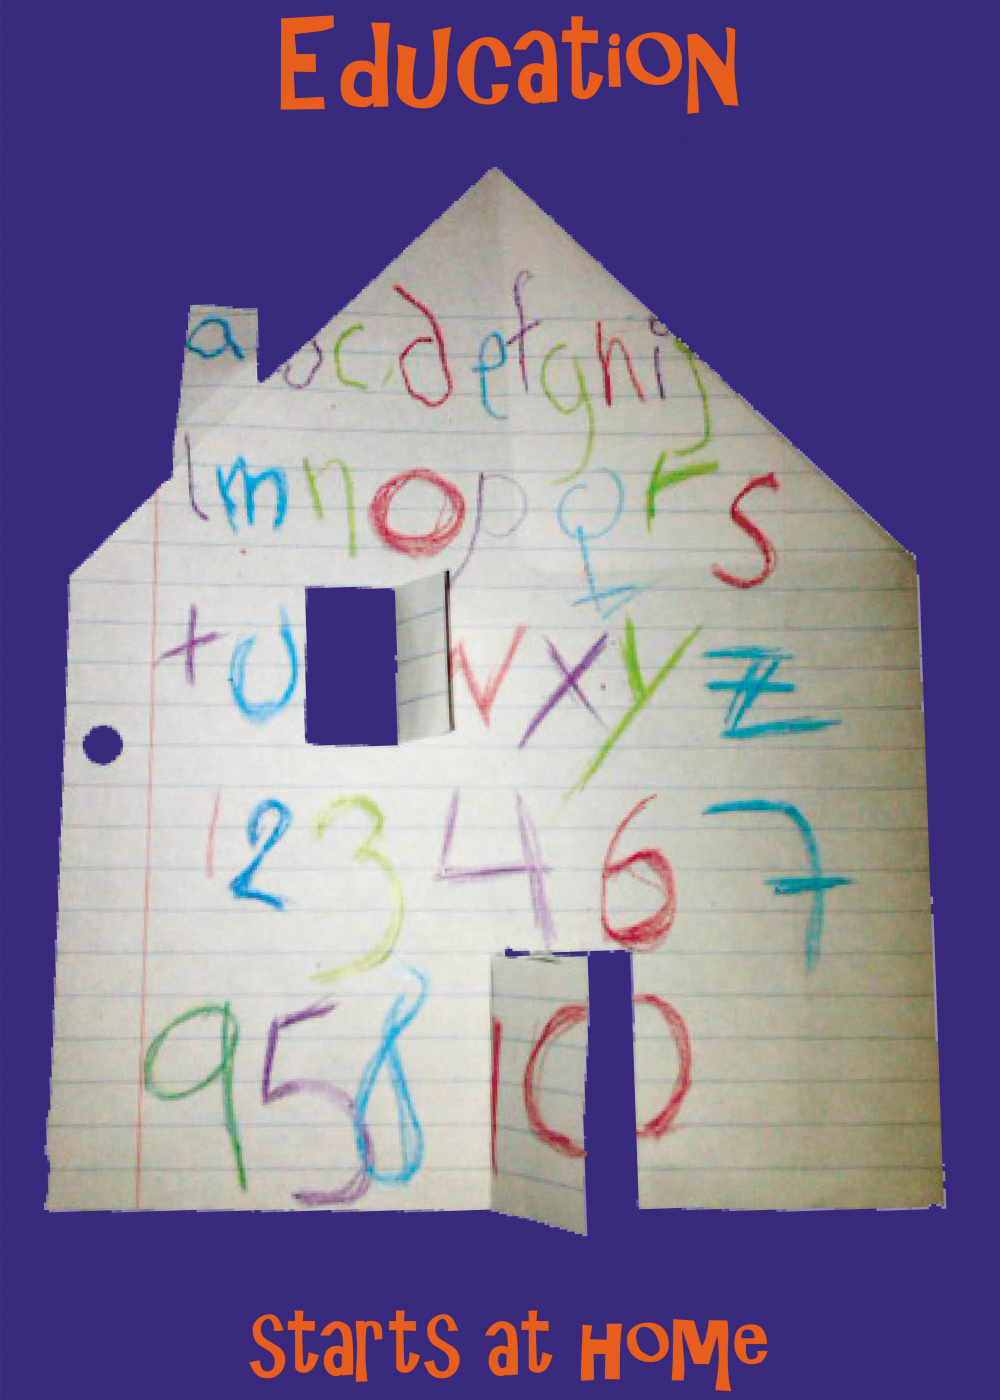 Education
a b c d e f g h i j
l m n o p q r s
t u w x y z
1 2 3 4 6 7
9 5 8 10
Starts at Home